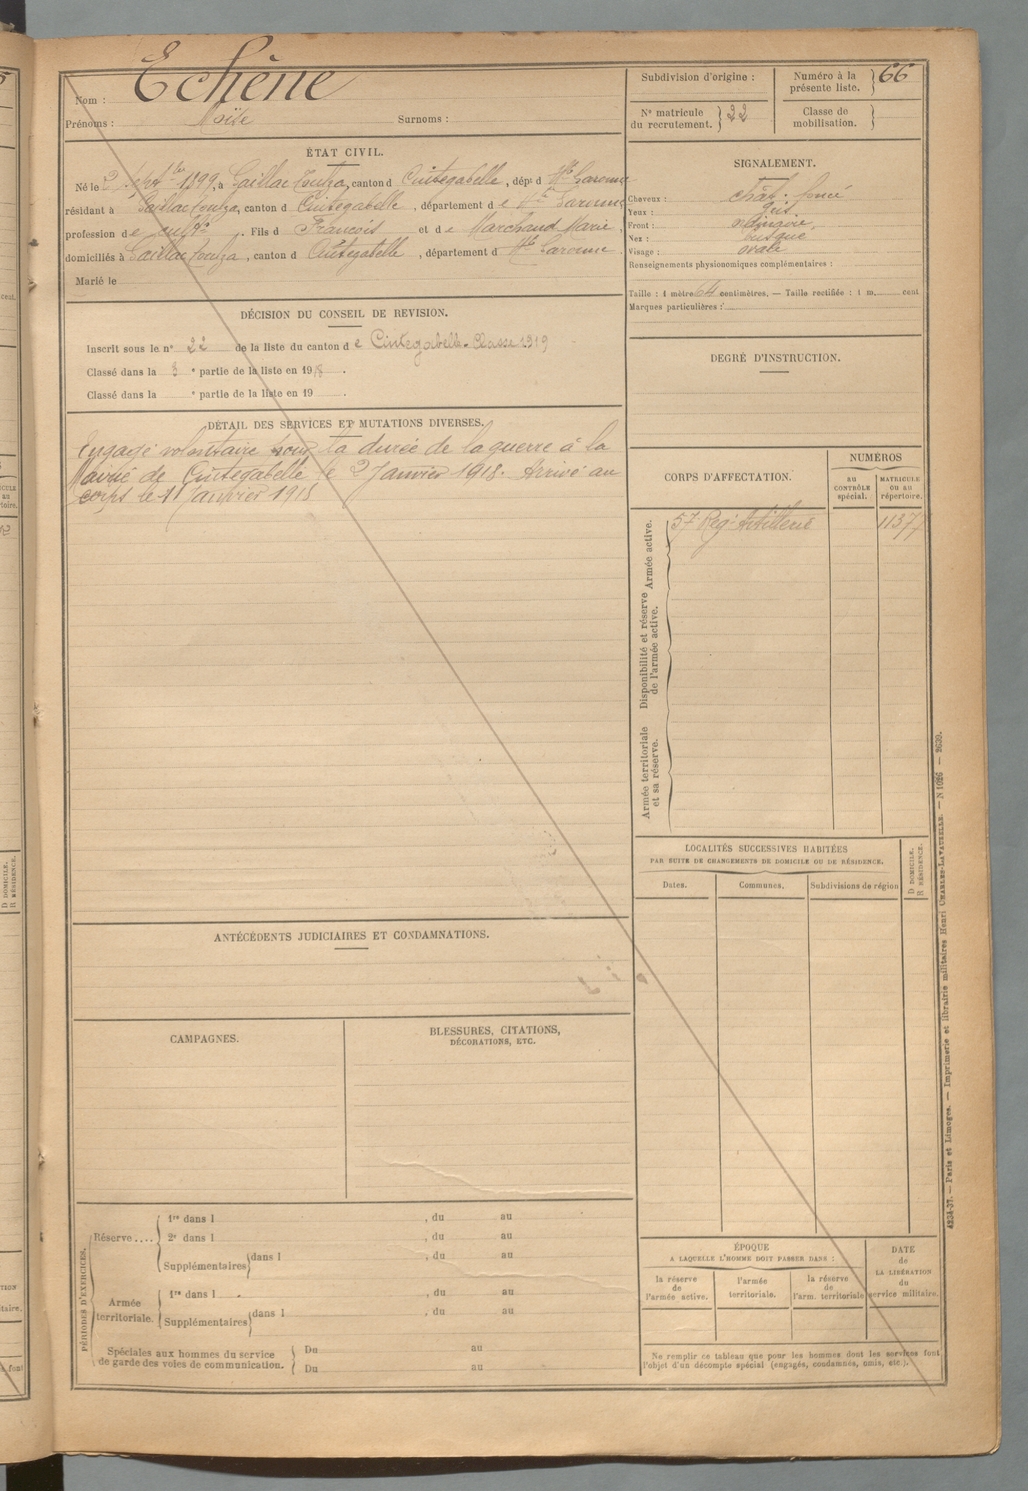 Nom : Echène
Prénoms : Moïse Surnoms :
ÉTAT CIVIL.
Né le 2 sept bre 1899, à Gaillac Toulza, canton d Cintegabelle, dép t d Hte Garonne
résidant à Gaillac Toulza, canton d Cintegabelle, département d e Hte Garonne
profession d e cult r. Fils d François et d e Marchand Marie,
domiciliés à Gaillac Toulza, canton d Cintegabelle, département d Hte Garonne
Marié le
DÉCISION DU CONSEIL DE REVISION.
Inscrit sous le n° 22 de la liste du canton d e Cintegabelle - Classe 1919
Classé dans la 3 e partie de la liste en 1918.
Classé dans la e partie de la liste en 19 .
DÉTAIL DES SERVICES ET MUTATIONS DIVERSES.
Engagé volontaire pour la durée de la guerre à la
Mairie de Cintegabelle le 2 Janvier 1918. Arrivé au
corps le 11 Janvier 1918
ANTÉCÉDENTS JUDICIAIRES ET CONDAMNATIONS.
CAMPAGNES.
BLESSURES, CITATIONS,
DÉCORATIONS, ETC.
PÉRIODES D'EXERCICES.
Réserve....
1re dans l , du au
2e dans l , du au
Supplémentaires dans l , du au
Armée
territoriale.
1re dans l , du au
Supplémentaires dans l , du au
Spéciales aux hommes du service
de garde des voies de communication.
Du au
Du au
Subdivision d'origine :
Numéro à la
présente liste. 66
N° matricule
du recrutement. 22
Classe de
mobilisation.
SIGNALEMENT.
Cheveux : chât. foncé
Yeux : gris
Front :
Nez : busqué
Visage : ovale
Renseignements physionomiques complémentaires :
Taille : 1 mètre 64 centimètres. — Taille rectifiée : 1 m. cent
Marques particulières :
DEGRÉ D'INSTRUCTION.
CORPS D'AFFECTATION.
NUMÉROS
au
CONTRÔLE
spécial.
MATRICULE
ou au
répertoire.
Armée active.
57 Rég. Artillerie 11377
Disponibilité et réserve
de l'armée active.
Armée territoriale
et sa réserve.
LOCALITÉS SUCCESSIVES HABITÉES
PAR SUITE DE CHANGEMENTS DE DOMICILE OU DE RÉSIDENCE.
Dates.
Communes.
Subdivisions de région
D DOMICILE.
R RÉSIDENCE.
ÉPOQUE
A LAQUELLE L'HOMME DOIT PASSER DANS :
la réserve
de
l'armée active.
l'armée
territoriale.
la réserve
de
l'arm. territoriale
DATE
de
LA LIBÉRATION
du
service militaire.
Ne remplir ce tableau que pour les hommes dont les services font
l'objet d'un décompte spécial (engagés, condamnés, omis, etc.).
4234-37. — Paris et Limoges. — Imprimerie et librairie militaires Henri CHARLES-LAVAUZELLE.